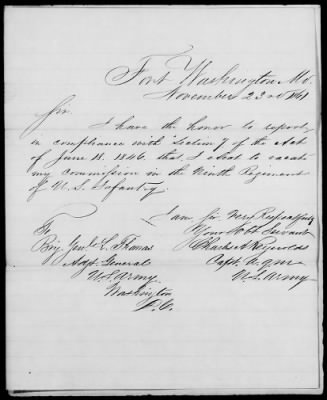 Fort Washington Md.
November 23rd 1861
Sir.
I have the honor to report,
in compliance with Section 7 of the Act
of June 18. 1846. that, I elect to vacate
my commission in the Ninth Regiment
of U. S. Infantry.
I am Sir Very Respectfully
Your Obt. Servant
Charles A Reynolds
Capt. A.Q.M.
U.S. Army
To
Brig Genl. L. Thomas
Adjt. General
U.S. Army
Washington
D.C.